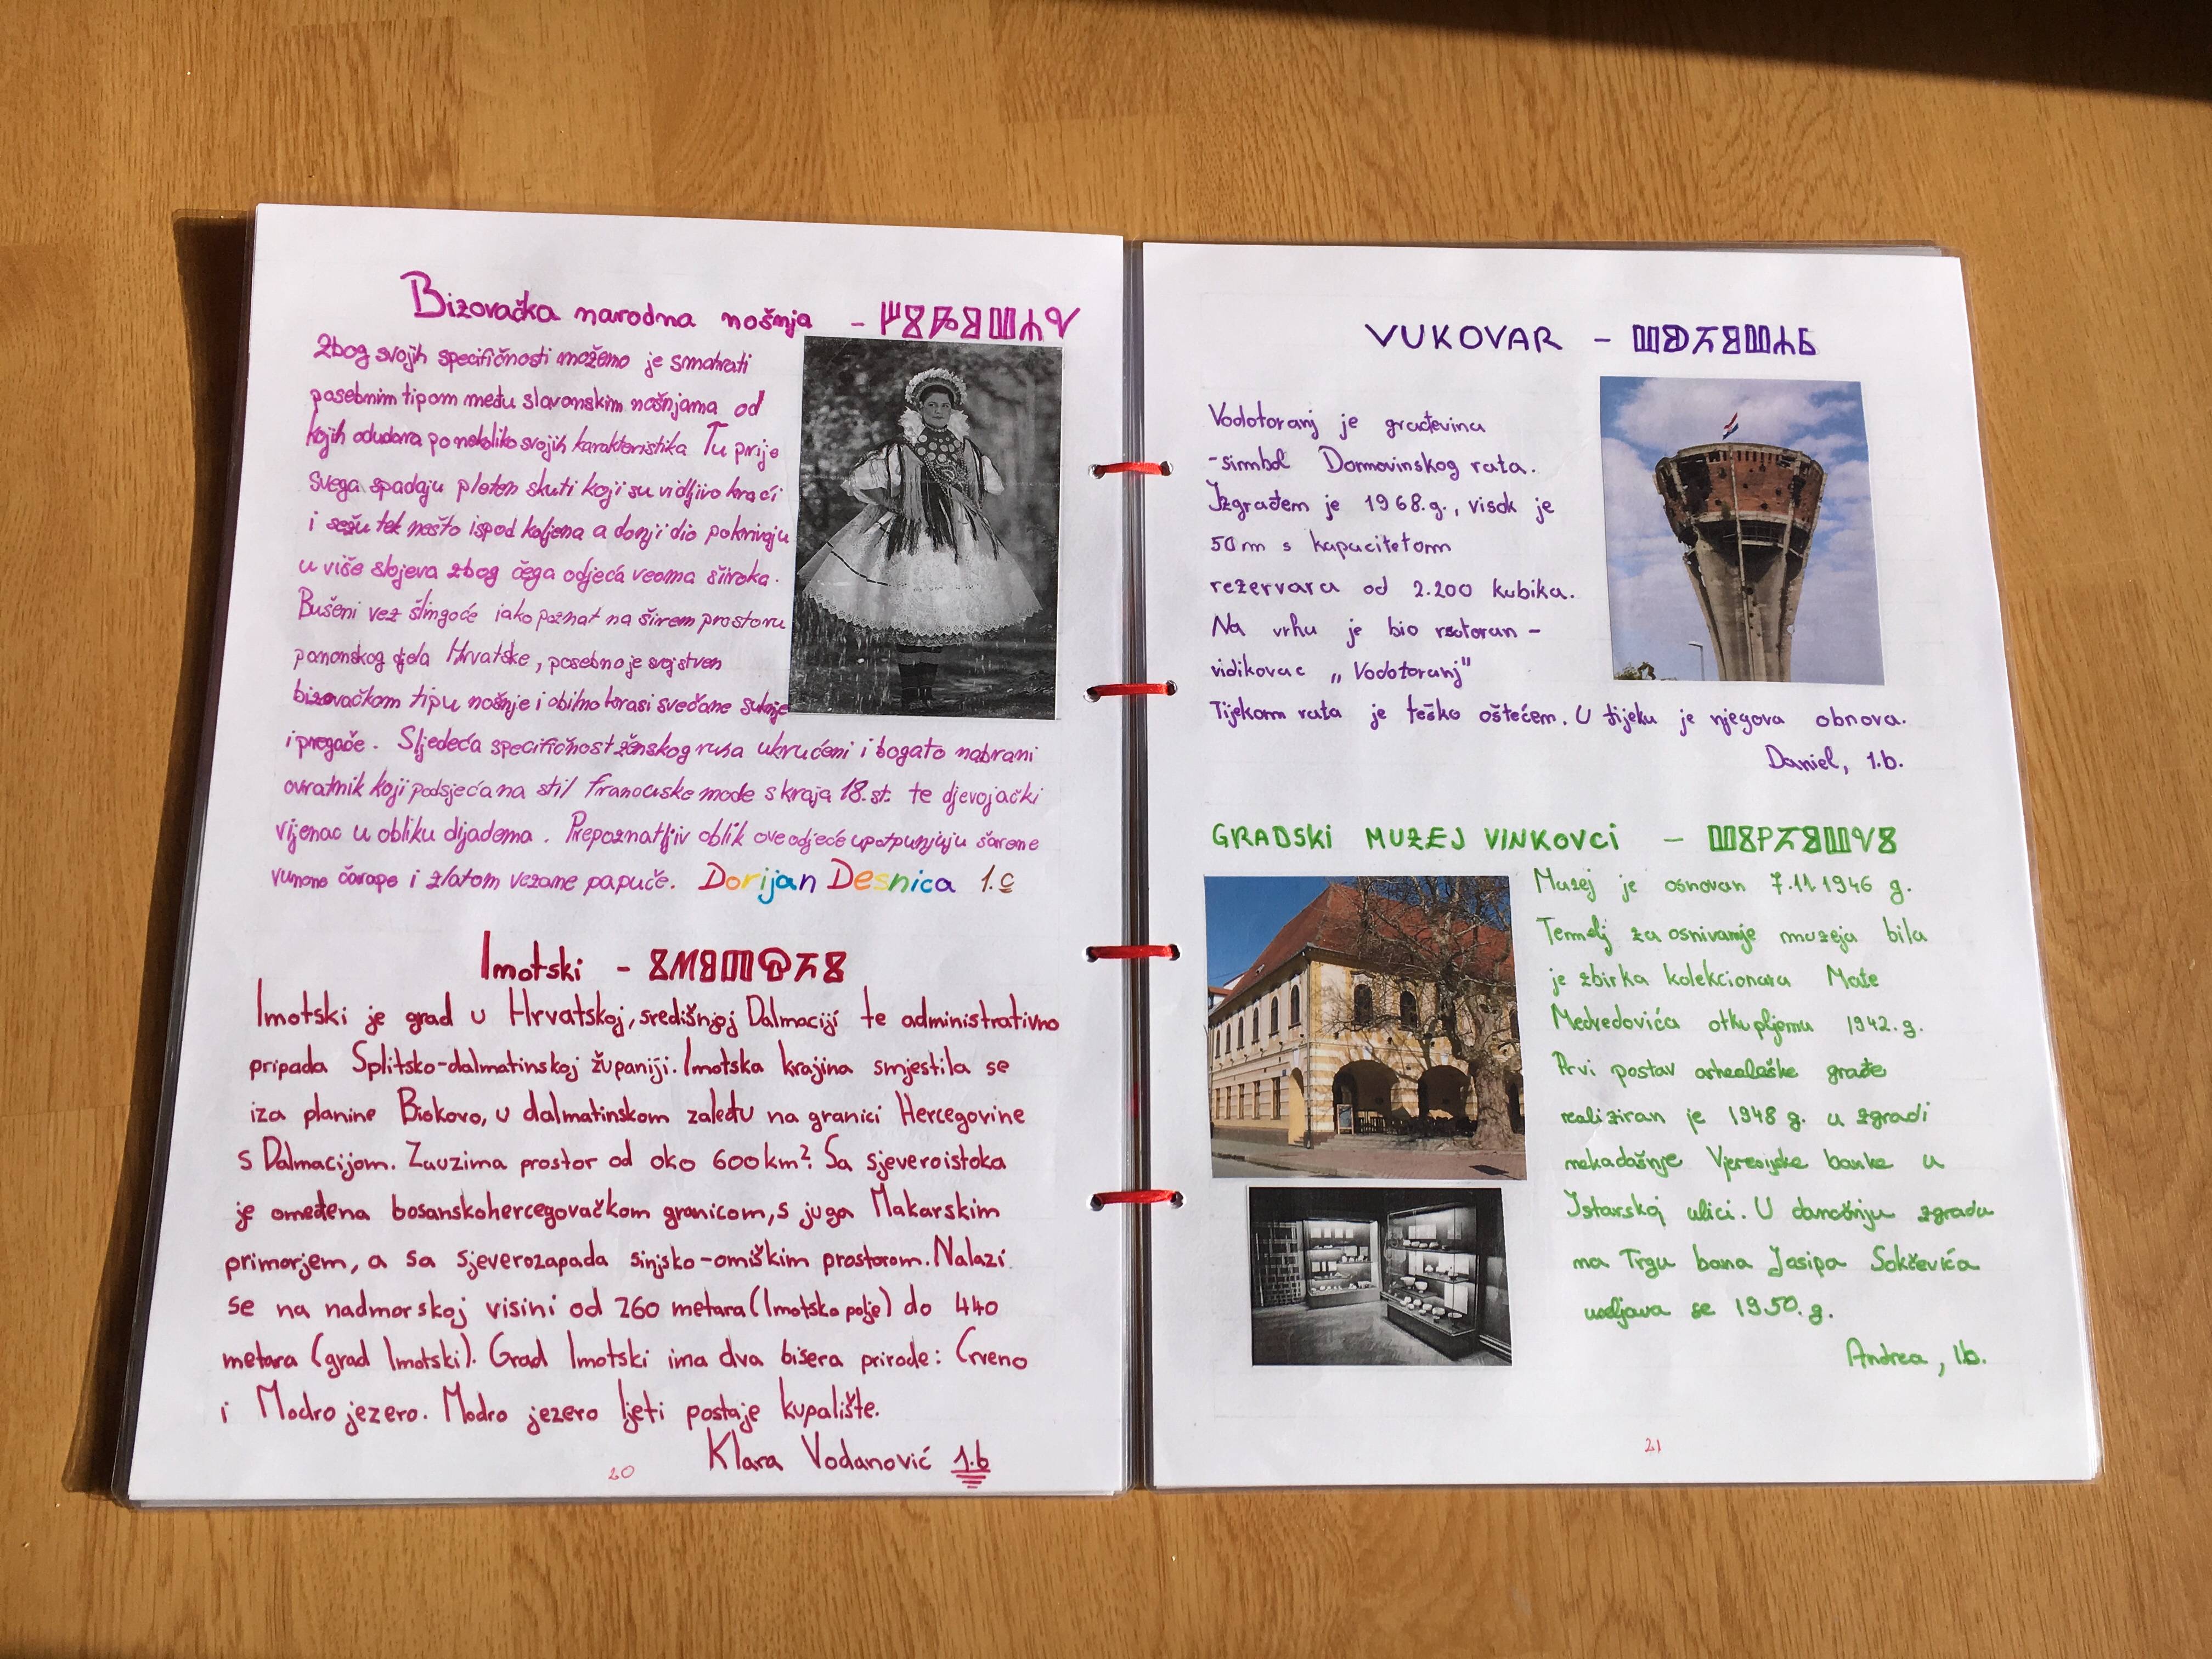 Bizovačka narodna nošnja - ⰁⰉⰈⰑⰂⰀⰜ
Zbog svojih specifičnosti možemo je smatrati
posebnim tipom među slavonskim nošnjama od
kojih odudara po nekoliko svojih karakteristika Tu prije
svega spadaju pleten skuti koji su vidljivo kraći
i sežu tek nešto ispod koljena a donji dio pokrivaju
u više slojeva zbog čega odjeća veoma široka.
Bušeni vez šlingoće iako poznat na širem prostoru
panonskog djela Hrvatske, posebno je svojstven
bizovačkom tipu nošnje i obilno krasi svečane suknje
i pregače. Sljedeća specifičnost ženskog ruha ukrućeni i bogato nabrani
ovratnik koji podsjeća na stil francuske mode s kraja 18. st. te djevojački
vijenac u obliku dijadema. Prepoznatljiv oblik ove odjeće upotpunjuju šarene
vunene čarape i zlatom vezane papuče. Dorijan Desnica 1.c
Imotski - ⰉⰏⰑⰕⰔⰍⰉ
Imotski je grad u Hrvatskoj, središnjoj Dalmaciji te administrativno
pripada Splitsko-dalmatinskoj županiji. Imotska krajina smjestila se
iza planine Biokovo, u dalmatinskom zaleđu na granici Hercegovine
s Dalmacijom. Zauzima prostor od oko 600 km². Sa sjeveroistoka
je omeđena bosanskohercegovačkom granicom, s juga Makarskim
primorjem, a sa sjeverozapada sinjsko-omiškim prostorom. Nalazi
se na nadmorskoj visini od 260 metara (Imotsko polje) do 440
metara (grad Imotski). Grad Imotski ima dva bisera prirode: Crveno
i Modro jezero. Modro jezero ljeti postaje kupalište.
Klara Vodanović 1.b
20
VUKOVAR - ⰂⰖⰍⰑⰂⰀⰓ
Vodotoranj je građevina
-simbol Domovinskog rata.
Izgrađem je 1968.g., visok je
50 m s kapacitetom
rezervara od 2.200 kubika.
Na vrhu je bio restoran -
vidikovac „Vodotoranj"
Tijekom rata je teško oštećem. U tijeku je njegova obnova.
Daniel, 1.b.
GRADSKI MUZEJ VINKOVCI - ⰂⰉⰐⰍⰑⰂⰜⰉ
Muzej je osnovan 7.11.1946 g.
Temelj za osnivanje muzeja bila
je zbirka kolekcionara Mate
Medvedovića otkupljemu 1942.g.
Prvi postav arheološke građe
realiziran je 1948 g. u zgradi
nekadašnje Vjeresijske banke u
Istarskoj ulici. U današnju zgradu
na Trgu bana Josipa Šokčevića
useljava se 1950. g.
Andrea, 1b.
21